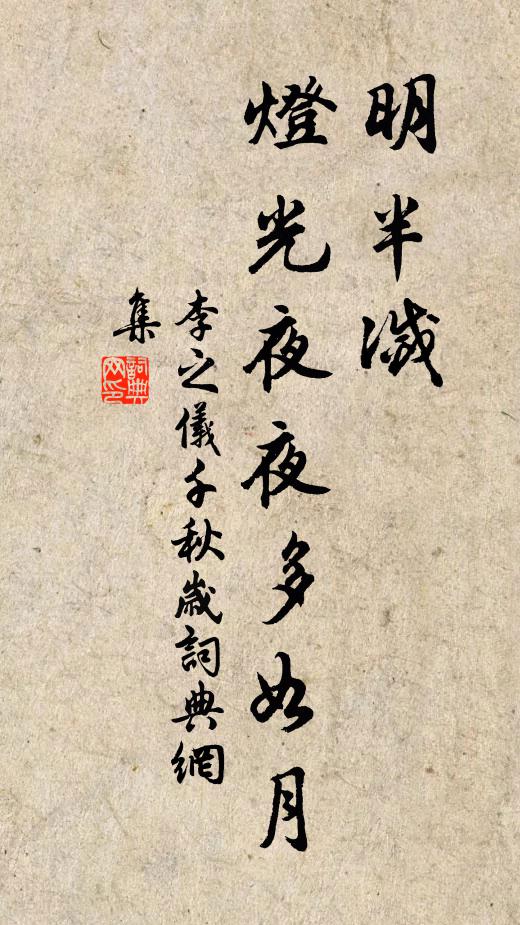 明半滅
燈光夜夜多如月
李之儀千秋歲詞典網
集
詞典網印